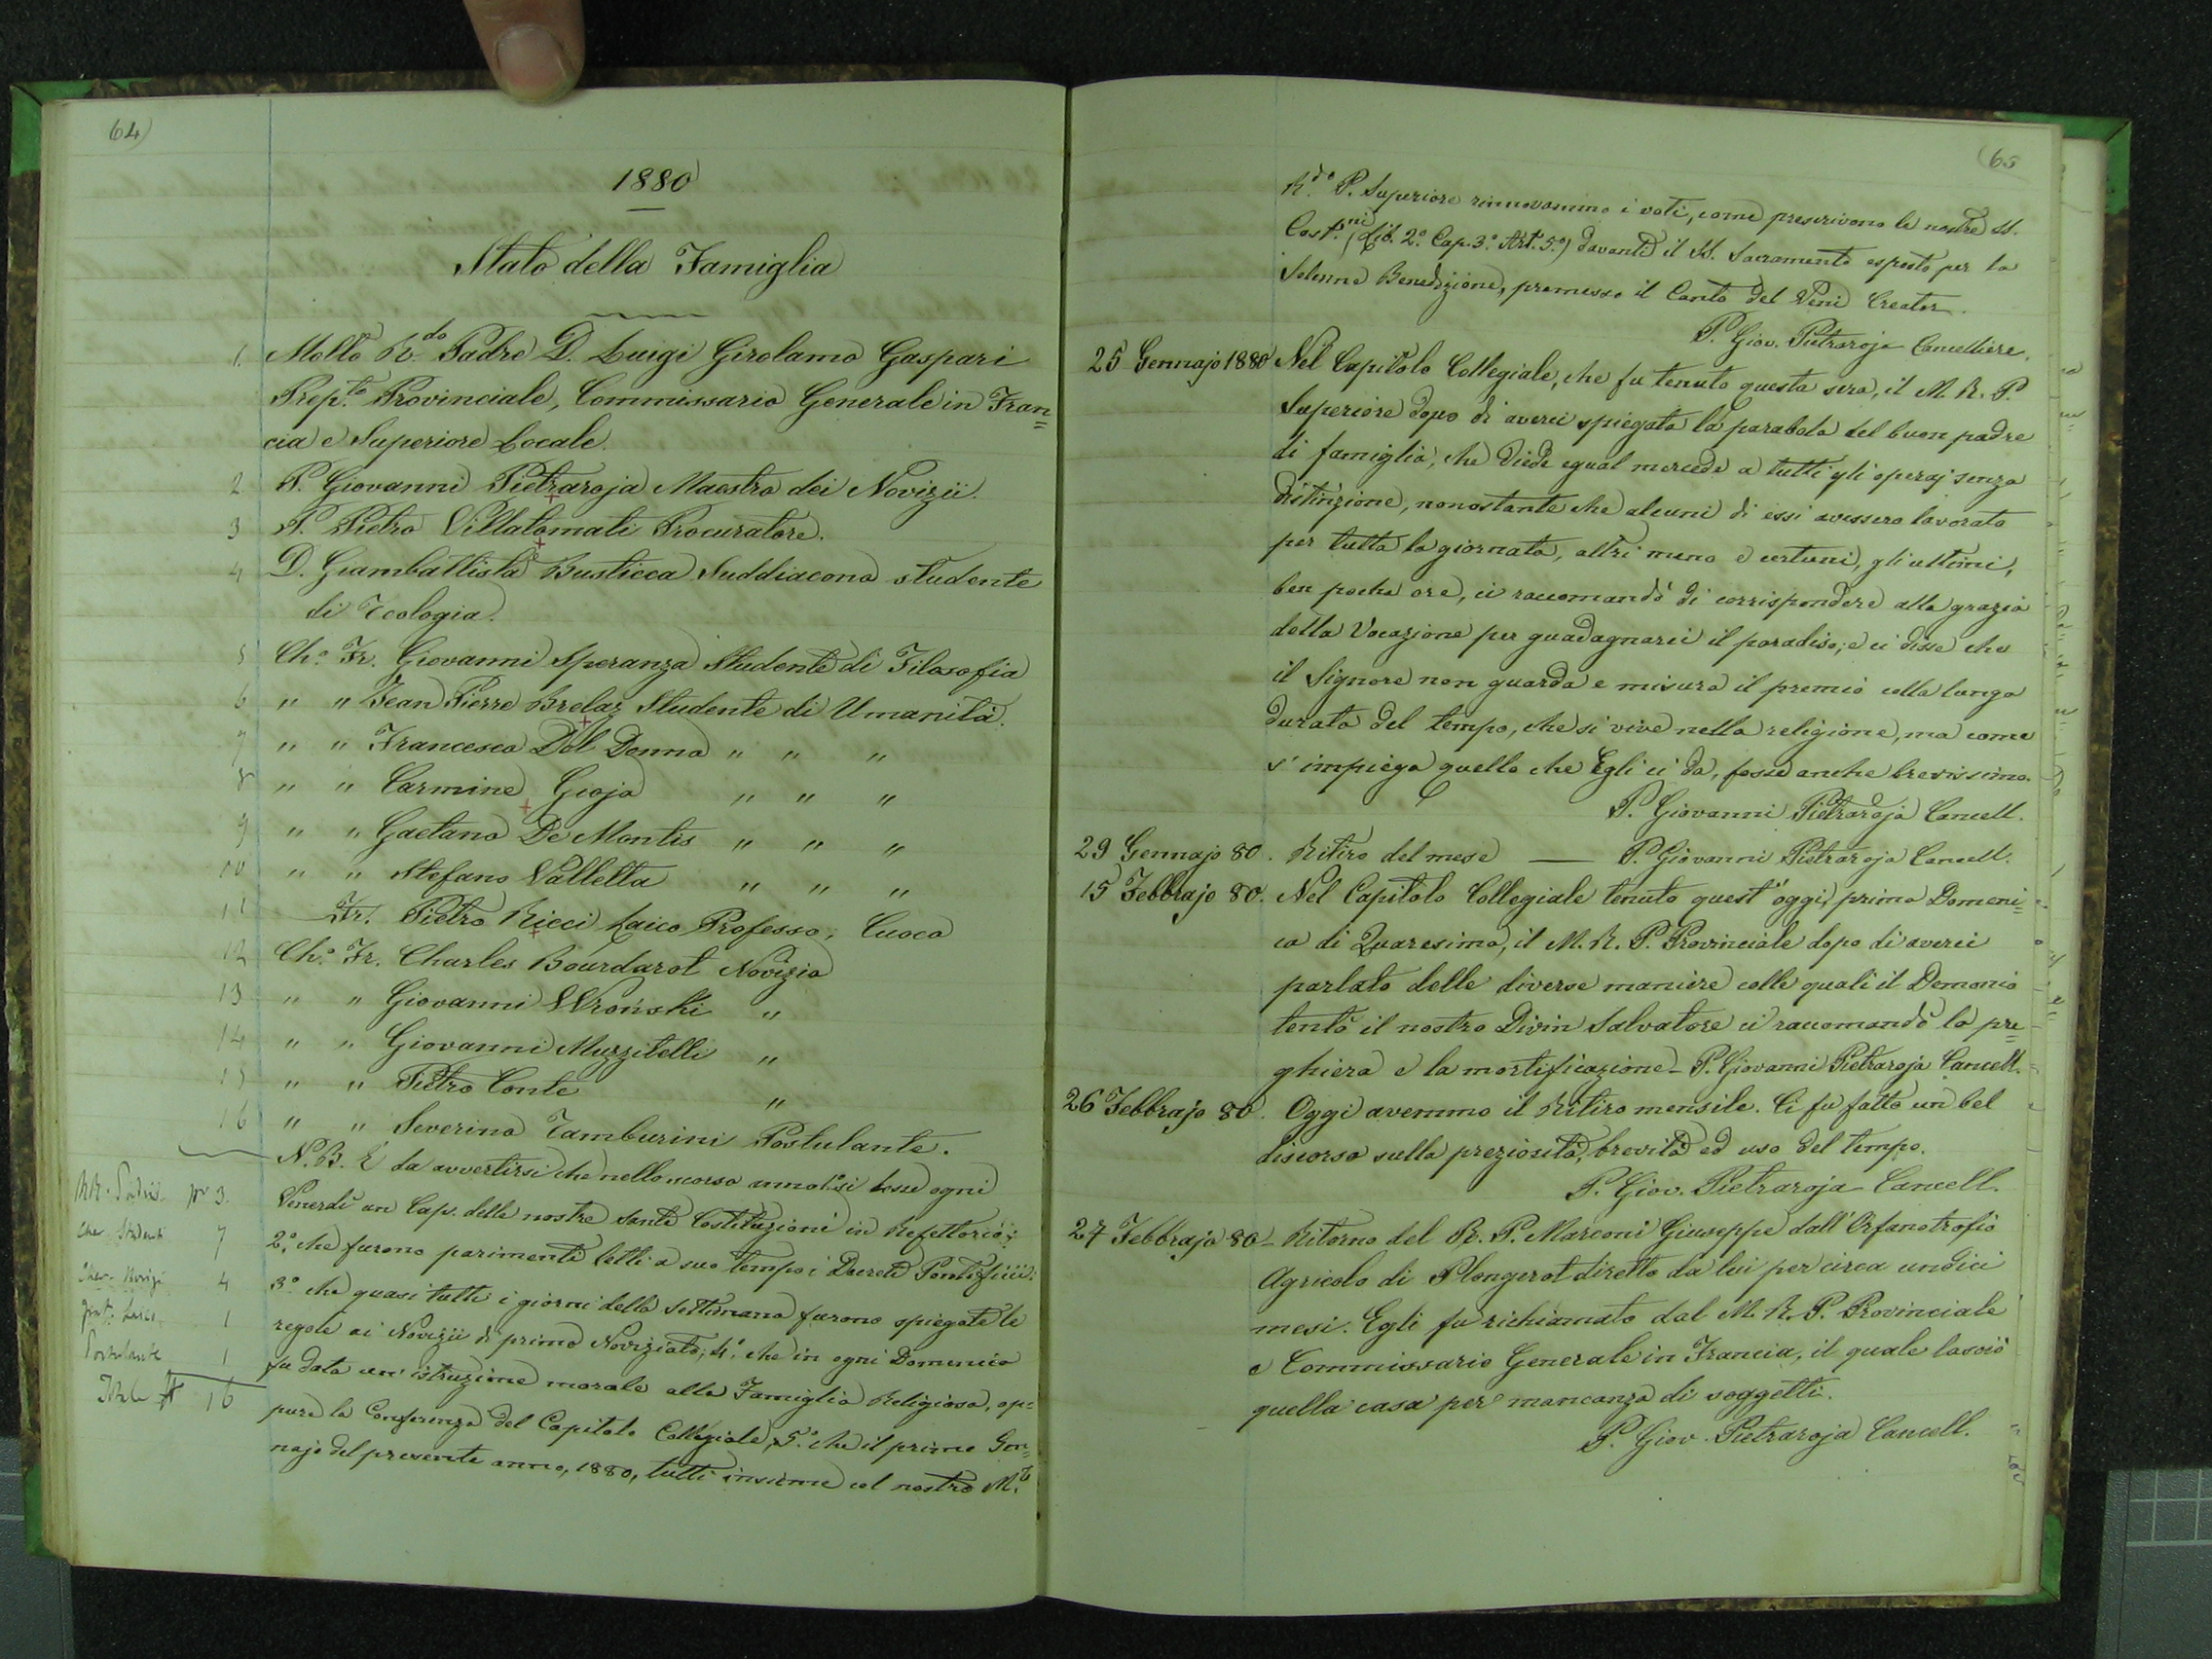 64)
1880
Stato della Famiglia
1. Molto R.do Padre D. Luigi Girolamo Gaspari
Prep.to Provinciale, Commissario Generale in Fran=
cia e Superiore Locale.
2 P. Giovanni Pietraroja Maestro dei Novizii.
3 P. Pietro Villatomati Procuratore.
4 D. Giambattista Busticca Suddiacono studente
di Teologia.
5 Ch.o Fr. Giovanni Speranza Studente di Filosofia
6 " " Jean Pierre Brelaz Studente di Umanità.
7 " " Francesco Dal Donno " " "
8 " " Carmine Gioja " " "
9 " " Gaetano De Montis " " "
10 " " Stefano Vallella " " "
11 Fr. Pietro Ricci Laico Professo, Cuoco
12 Ch.o Fr. Charles Bourdarot Novizio
13 " " Giovanni Wroński "
14 " " Giovanni Muzzitelli "
15 " " Pietro Conte "
16 " " Severino Tamburini Postulante.
N.B. È da avvertirsi che nello scorso anno 1.o si lesse ogni
Venerdì un Cap. delle nostre Sante Costituzioni in Refettorio;
2.o che furono parimenti letti a suo tempo i Decreti Pontificii;
3.o che quasi tutti i giorni della Settimana furono spiegate le
regole ai Novizii di primo Noviziato; 4.o che in ogni Domenica
fu data un'istruzione morale alla Famiglia Religiosa, op=
pure la Conferenza del Capitolo Collegiale, 5.o che il primo Gen=
najo del presente anno, 1880, tutti insieme col nostro M.to
RR. Padri 3.
Cher. Studenti 7
Cher. Novizi 4
frat. Laico 1
Postulante 1
Totale 16
(65
R.do P. Superiore rinnovammo i voti, come prescrivono le nostre SS.
Cost.ni (Lib. 2.o Cap. 3.o Art. 5.o) davanti il SS. Sacramento esposto per la
Solenne Benedizione, premesso il Canto del Veni Creator.
P. Giov. Pietraroja Cancelliere.
25 Gennajo 1880 Nel Capitolo Collegiale, che fu tenuto questa sera, il M. R. P.
Superiore dopo di averci spiegata la parabola del buon padre
di famiglia, che diede egual mercede a tutti gli operaj senza
distinzione, nonostante che alcuni di essi avessero lavorato
per tutta la giornata, altri meno e certuni, gli ultimi,
ben poche ore, ci raccomandò di corrispondere alla grazia
della Vocazione per guadagnarci il paradiso; e ci disse che
il Signore non guarda e misura il premio colla lunga
durata del tempo, che si vive nella religione, ma come
s'impiega quello che Egli ci dà, fosse anche brevissimo.
P. Giovanni Pietraroja Cancell.
29 Gennajo 80. Ritiro del mese — P. Giovanni Pietraroja Cancell.
15 Febbrajo 80. Nel Capitolo Collegiale tenuto quest'oggi, prima Domeni=
ca di Quaresima, il M. R. P. Provinciale dopo di averci
parlato delle diverse maniere colle quali il Demonio
tentò il nostro Divin Salvatore ci raccomandò la pre=
ghiera e la mortificazione – P. Giovanni Pietraroja Cancell.
26 Febbrajo 80. Oggi avemmo il Ritiro mensile. Ci fu fatto un bel
discorso sulla preziosità, brevità ed uso del tempo.
P. Giov. Pietraroja Cancell.
27 Febbrajo 80 – Ritorno del R. P. Marconi Giuseppe dall'Orfanotrofio
Agricolo di Plongerot diretto da lui per circa undici
mesi. Egli fu richiamato dal M. R. P. Provinciale
e Commissario Generale in Francia, il quale lasciò
quella casa per mancanza di soggetti.
P. Giov. Pietraroja Cancell.